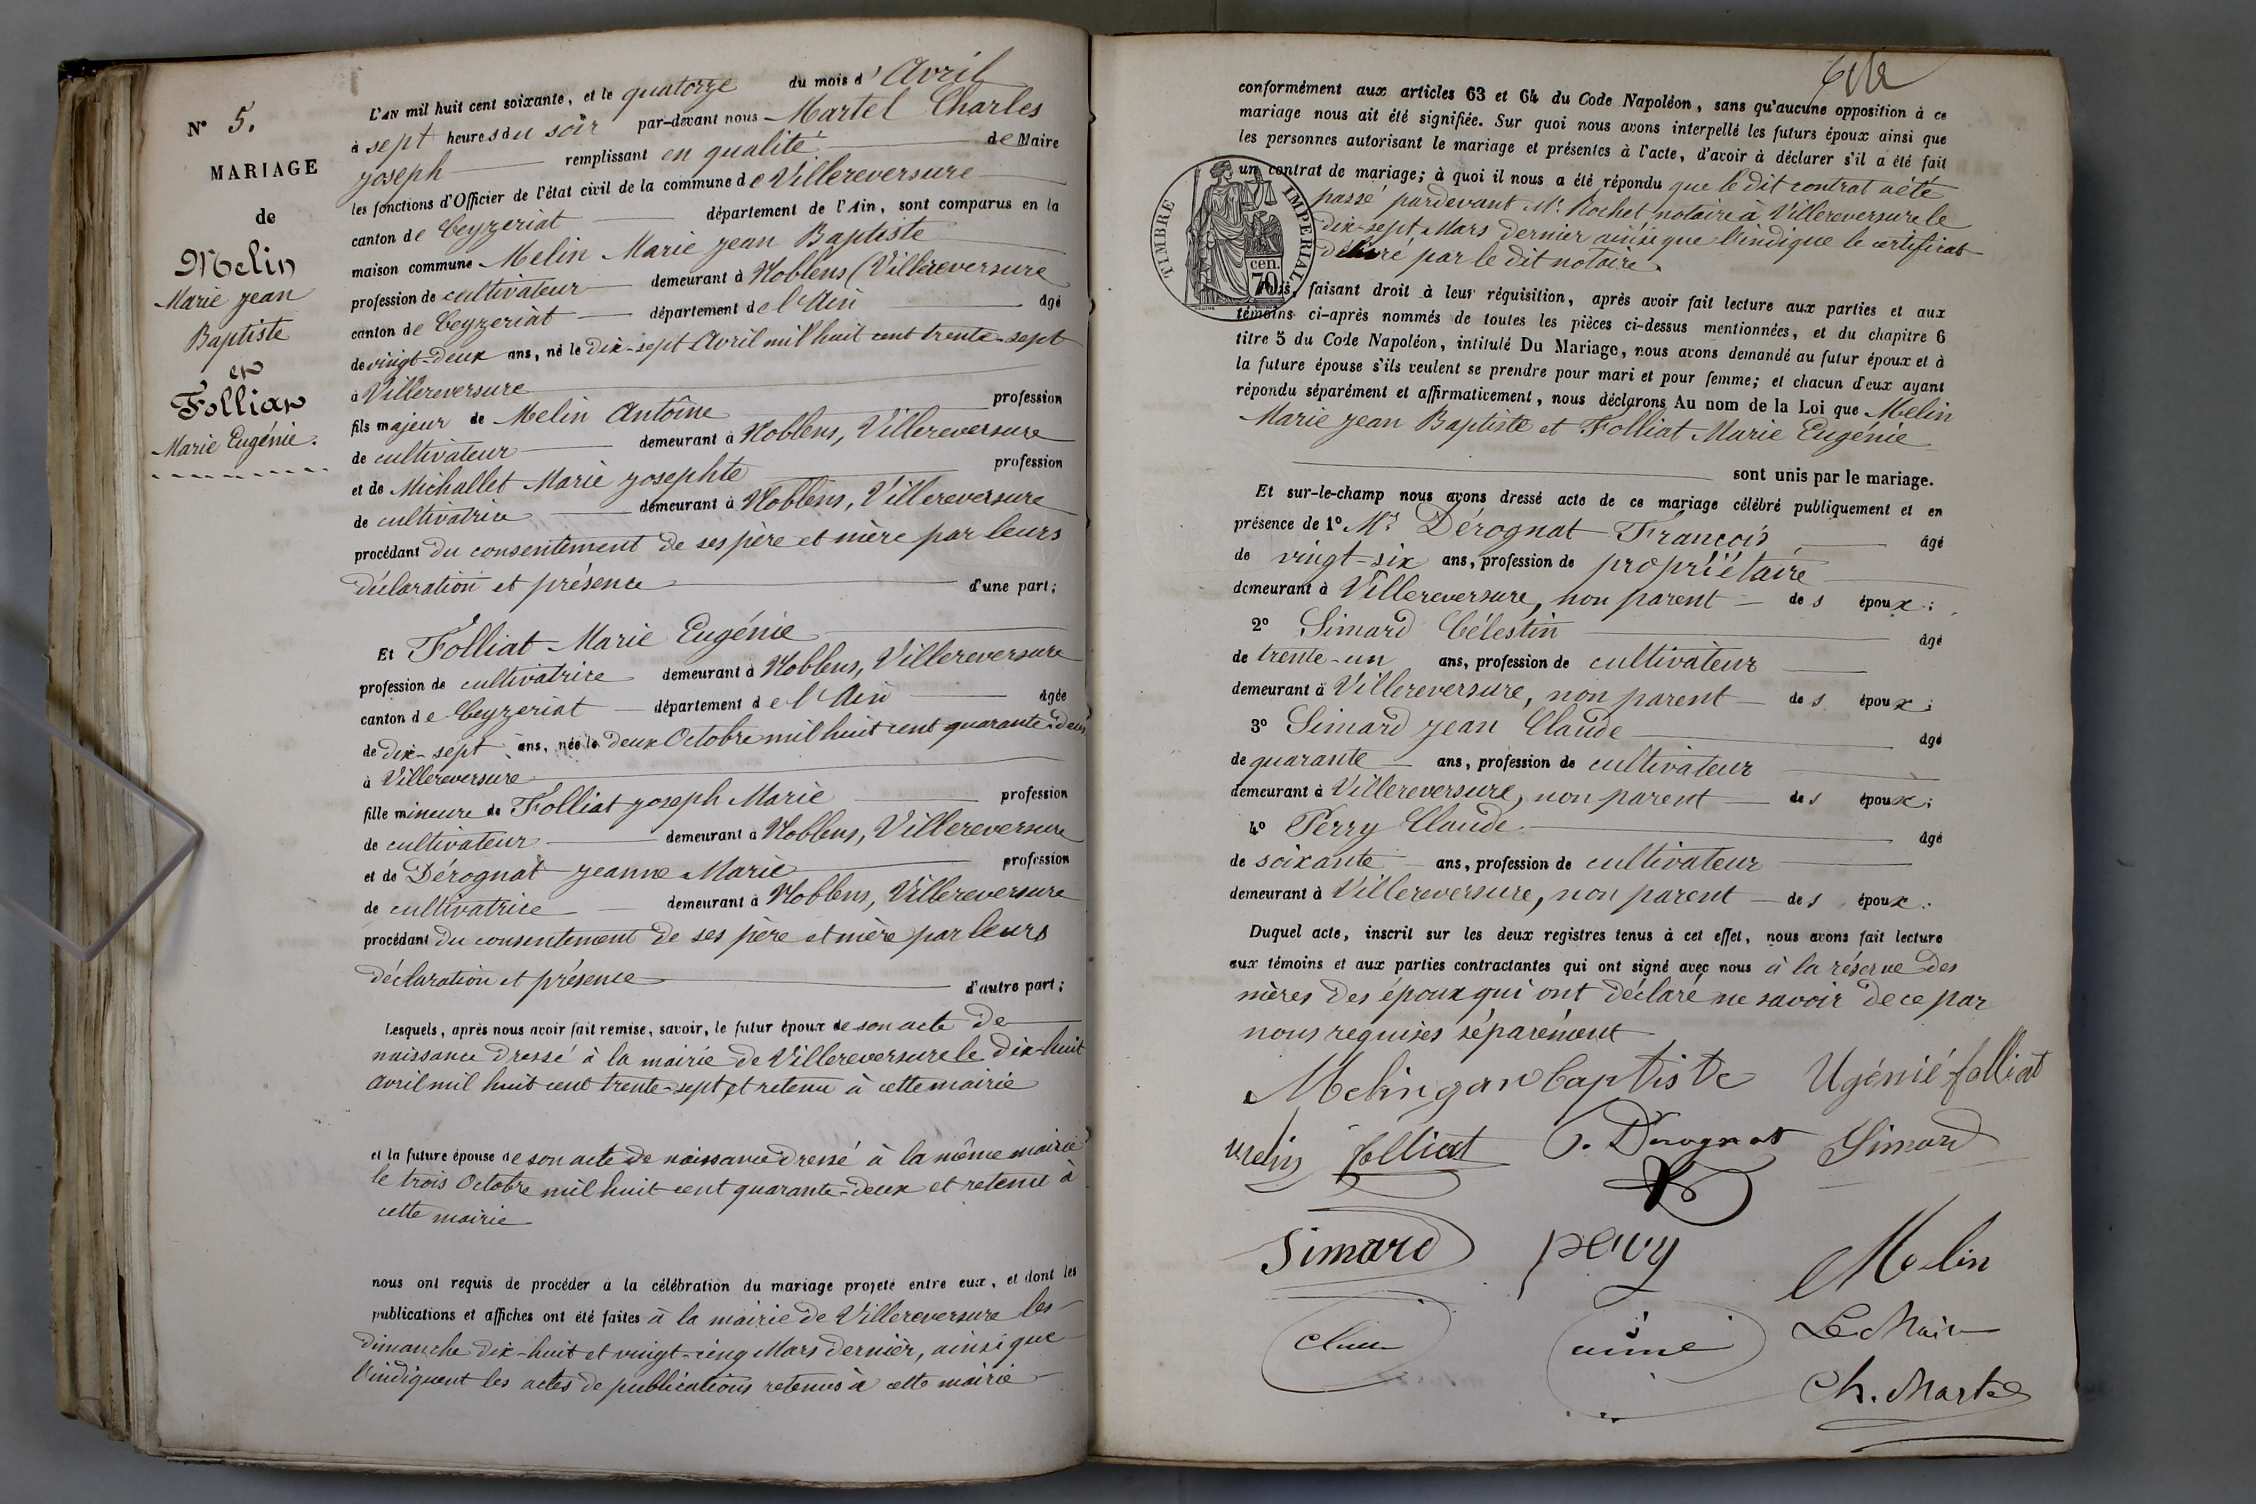 N° 5.
MARIAGE
de
Melin
Marie Jean
Baptiste
et
Folliat
Marie Eugénie.
L'AN mil huit cent soixante, et le quatorze du mois d'Avril
à sept heures du soir par-devant nous Martel Charles
Joseph remplissant en qualité de Maire
les fonctions d'Officier de l'état civil de la commune de Villereversure
canton de Ceyzeriat département de l'Ain, sont comparus en la
maison commune Melin Marie Jean Baptiste
profession de cultivateur demeurant à Noblens (Villereversure
canton de Ceyzeriat département de l'Ain âgé
de vingt-deux ans, né le dix-sept Avril mil huit cent trente-sept
à Villereversure
fils majeur de Melin Antoîne profession
de cultivateur demeurant à Noblens, Villereversure
et de Michallet Marie Josephte profession
de cultivatrice demeurant à Noblens, Villereversure
procédant du consentement de ses père et mère par leurs
déclaration et présence d'une part;
Et Folliat Marie Eugénie
profession de cultivatrice demeurant à Noblens, Villereversure
canton de Ceyzeriat département de l'Ain âgée
de dix-sept ans, née le deux Octobre mil huit cent quarante-deux
à Villereversure
fille mineure de Folliat Joseph Marie profession
de cultivateur demeurant à Noblens, Villereversure
et de Dérognat Jeanne Marie profession
de cultivatrice demeurant à Noblens, Villereversure
procédant du consentement de ses père et mère par leurs
déclaration et présence d'autre part;
Lesquels, après nous avoir fait remise, savoir, le futur époux de son acte de
naissance dressé à la mairie de Villereversure le dix-huit
avril mil huit cent trente-sept et retenu à cette mairie
et la future épouse de son acte de naissance dressé à la même mairie
le trois Octobre mil huit cent quarante-deux et retenu à
cette mairie
nous ont requis de procéder à la célébration du mariage projeté entre eux, et dont les
publications et affiches ont été faites à la mairie de Villereversure les
dimanche dix-huit et vingt-cinq Mars dernier, ainsi que
l'indiquent les actes de publications retenus à cette mairie
conformément aux articles 63 et 64 du Code Napoléon, sans qu'aucune opposition à ce
mariage nous ait été signifiée. Sur quoi nous avons interpellé les futurs époux ainsi que
les personnes autorisant le mariage et présentes à l'acte, d'avoir à déclarer s'il a été fait
un contrat de mariage; à quoi il nous a été répondu que le dit contrat a été
passé pardevant Mr. Rochet notaire à Villereversure le
dix-sept Mars dernier ainsi que l'indique le certificat
délivré par le dit notaire.
TIMBRE IMPERIAL
70 cen.
Nous, faisant droit à leur réquisition, après avoir fait lecture aux parties et aux
témoins ci-après nommés de toutes les pièces ci-dessus mentionnées, et du chapitre 6
titre 5 du Code Napoléon, intitulé Du Mariage, nous avons demandé au futur époux et à
la future épouse s'ils veulent se prendre pour mari et pour femme; et chacun d'eux ayant
répondu séparément et affirmativement, nous déclarons Au nom de la Loi que Melin
Marie Jean Baptiste et Folliat Marie Eugénie
sont unis par le mariage.
Et sur-le-champ nous avons dressé acte de ce mariage célébré publiquement et en
présence de 1° Mr Dérognat François âgé
de vingt-six ans, profession de propriétaire
demeurant à Villereversure, non parent des époux;
2° Simard Célestin âgé
de trente-un ans, profession de cultivateur
demeurant à Villereversure, non parent des époux;
3° Simard Jean Claude âgé
de quarante ans, profession de cultivateur
demeurant à Villereversure, non parent des époux;
4° Perry Claude âgé
de soixante ans, profession de cultivateur
demeurant à Villereversure, non parent des époux.
Duquel acte, inscrit sur les deux registres tenus à cet effet, nous avons fait lecture
aux témoins et aux parties contractantes qui ont signé avec nous à la réserve des
mères des époux qui ont déclaré ne savoir de ce par
nous requises séparément
Melin gan baptiste Ugénié folliat
melin folliat f. Derognat Simard
Simard pery Melin
Claude aimé Le Maire
Ch. Martel